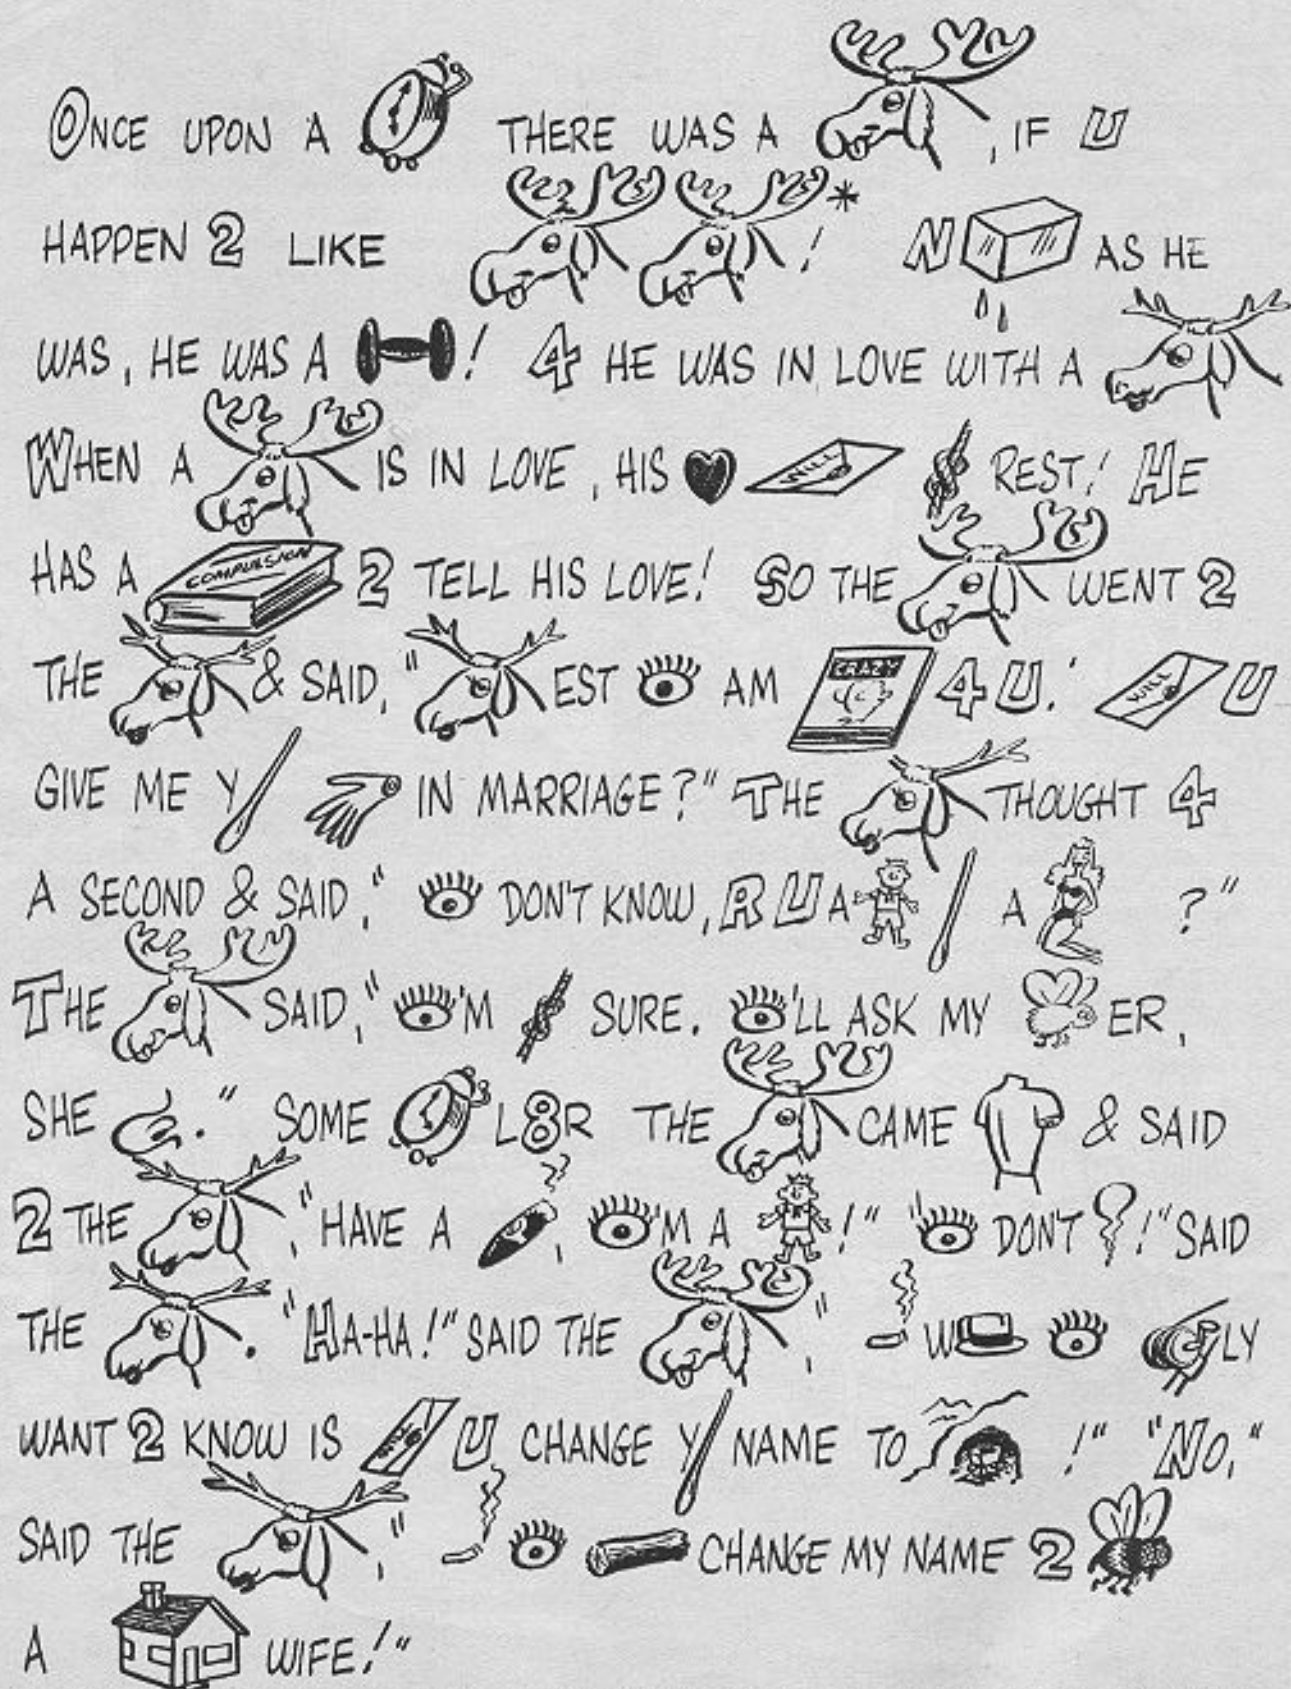 ONCE UPON A THERE WAS A , IF U
HAPPEN 2 LIKE !* N AS HE
WAS, HE WAS A ! 4 HE WAS IN LOVE WITH A
WHEN A IS IN LOVE, HIS WILL REST! HE
HAS A COMPULSION 2 TELL HIS LOVE! SO THE WENT 2
THE & SAID, "EST AM CRAZY 4 U. WILL U
GIVE ME Y IN MARRIAGE?" THE THOUGHT 4
A SECOND & SAID, " DON'T KNOW, R U A A ?"
THE SAID, "'M SURE. 'LL ASK MY ER,
SHE ." SOME L8R THE CAME & SAID
2 THE , "HAVE A , 'M A !" " DON'T !" SAID
THE . "HA-HA!" SAID THE , " W LY
WANT 2 KNOW IS WILL U CHANGE Y NAME TO !" "NO,"
SAID THE , " CHANGE MY NAME 2
A WIFE!"